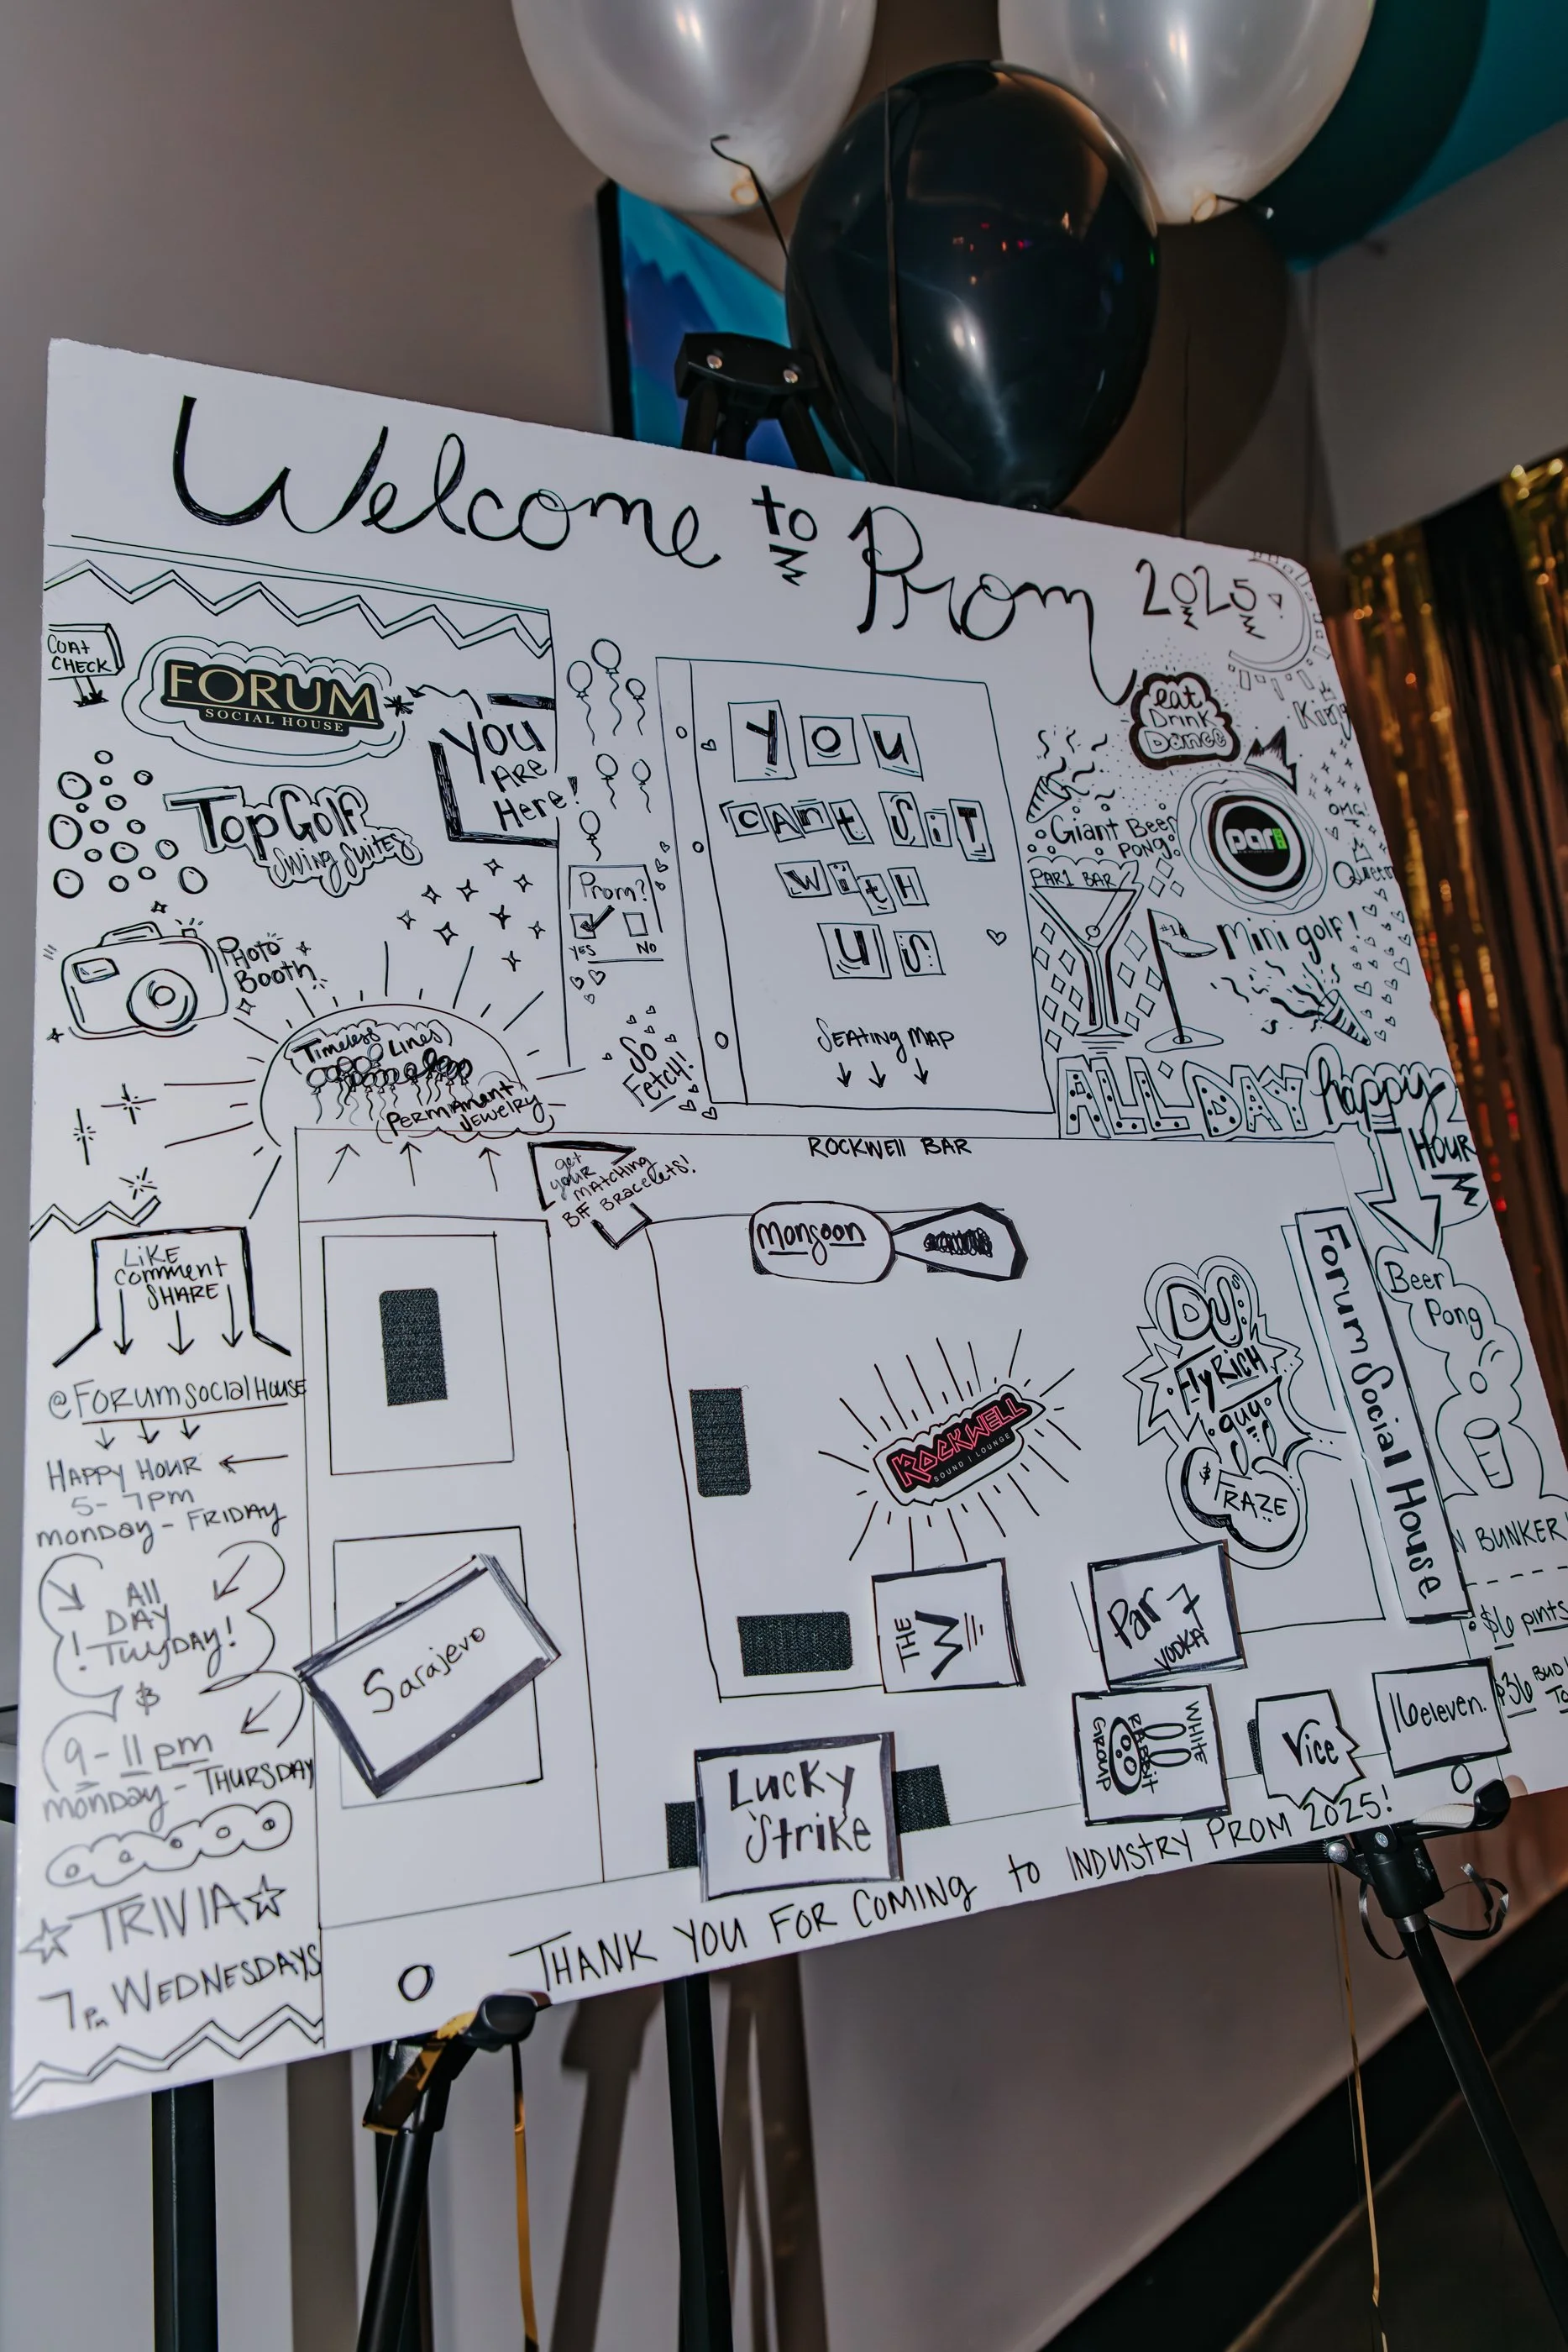 Welcome to Prom 2025
COAT
CHECK
FORUM
SOCIAL HOUSE
YOU
ARE
Here!
TopGolf
Swing Suites
PHOTO
BOOTH
Timeless Lines
PERMANANT
JEWELRY
Prom?
YES NO
So
Fetch!
You
CAnt SiT
WitH
US
SEATING MAP
eat
DRINK
Dance
King
Giant Beer
PONG
OMG!
Queen
par
PAR1 BAR
#1
Mini golf!
ALL DAY happy
HOUR
ROCKWEll BAR
get
your
MATCHING
BFF BRACElets!
LIKE
Comment
SHARE
@FORUMSOCIALHOUSE
HAPPY HOUR
5-7pm
monday - FRIDAY
All
DAY
! TUESDAY!
&
9-11pm
monday - THURSDAY
TRIVIA
7pm WEDNESDAYS
monsoon
ROCKWELL
SOUND | LOUNGE
DJ
FlyRICH
guy
&
FRAZE
Forum Social House
Beer
Pong
BUNKER
$6 pints
$36 BUD
Sarajevo
THE
W
Par 7
VODKA
WHITE
RABBIT
GROUP
Vice
16eleven.
Lucky
Strike
THANK YOU FOR COMING to INDUSTRY PROM 2025!